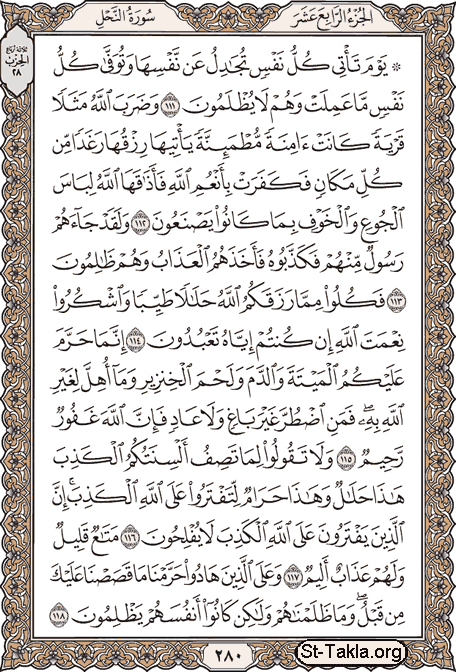 الجزء الرابع عشر
سورة النحل
ثلاثة أرباع
الحزب
٢٨
۞ يَوْمَ تَأْتِي كُلُّ نَفْسٍ تُجَادِلُ عَن نَّفْسِهَا وَتُوَفَّىٰ كُلُّ
نَفْسٍ مَّا عَمِلَتْ وَهُمْ لَا يُظْلَمُونَ ١١١ وَضَرَبَ اللَّهُ مَثَلًا
قَرْيَةً كَانَتْ ءَامِنَةً مُّطْمَئِنَّةً يَأْتِيهَا رِزْقُهَا رَغَدًا مِّن
كُلِّ مَكَانٍ فَكَفَرَتْ بِأَنْعُمِ اللَّهِ فَأَذَاقَهَا اللَّهُ لِبَاسَ
الْجُوعِ وَالْخَوْفِ بِمَا كَانُوا يَصْنَعُونَ ١١٢ وَلَقَدْ جَاءَهُمْ
رَسُولٌ مِّنْهُمْ فَكَذَّبُوهُ فَأَخَذَهُمُ الْعَذَابُ وَهُمْ ظَالِمُونَ
١١٣ فَكُلُوا مِمَّا رَزَقَكُمُ اللَّهُ حَلَالًا طَيِّبًا وَاشْكُرُوا
نِعْمَتَ اللَّهِ إِن كُنتُمْ إِيَّاهُ تَعْبُدُونَ ١١٤ إِنَّمَا حَرَّمَ
عَلَيْكُمُ الْمَيْتَةَ وَالدَّمَ وَلَحْمَ الْخِنزِيرِ وَمَا أُهِلَّ لِغَيْرِ
اللَّهِ بِهِ ۖ فَمَنِ اضْطُرَّ غَيْرَ بَاغٍ وَلَا عَادٍ فَإِنَّ اللَّهَ غَفُورٌ
رَّحِيمٌ ١١٥ وَلَا تَقُولُوا لِمَا تَصِفُ أَلْسِنَتُكُمُ الْكَذِبَ
هَٰذَا حَلَالٌ وَهَٰذَا حَرَامٌ لِّتَفْتَرُوا عَلَى اللَّهِ الْكَذِبَ ۚ إِنَّ
الَّذِينَ يَفْتَرُونَ عَلَى اللَّهِ الْكَذِبَ لَا يُفْلِحُونَ ١١٦ مَتَاعٌ قَلِيلٌ
وَلَهُمْ عَذَابٌ أَلِيمٌ ١١٧ وَعَلَى الَّذِينَ هَادُوا حَرَّمْنَا مَا قَصَصْنَا عَلَيْكَ
مِن قَبْلُ ۖ وَمَا ظَلَمْنَاهُمْ وَلَٰكِن كَانُوا أَنفُسَهُمْ يَظْلِمُونَ ١١٨
٢٨٠
St-Takla.org